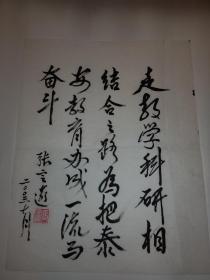 走教学科研相
结合之路为把泰
安教育办成一流而
奋斗
二〇〇三年十月